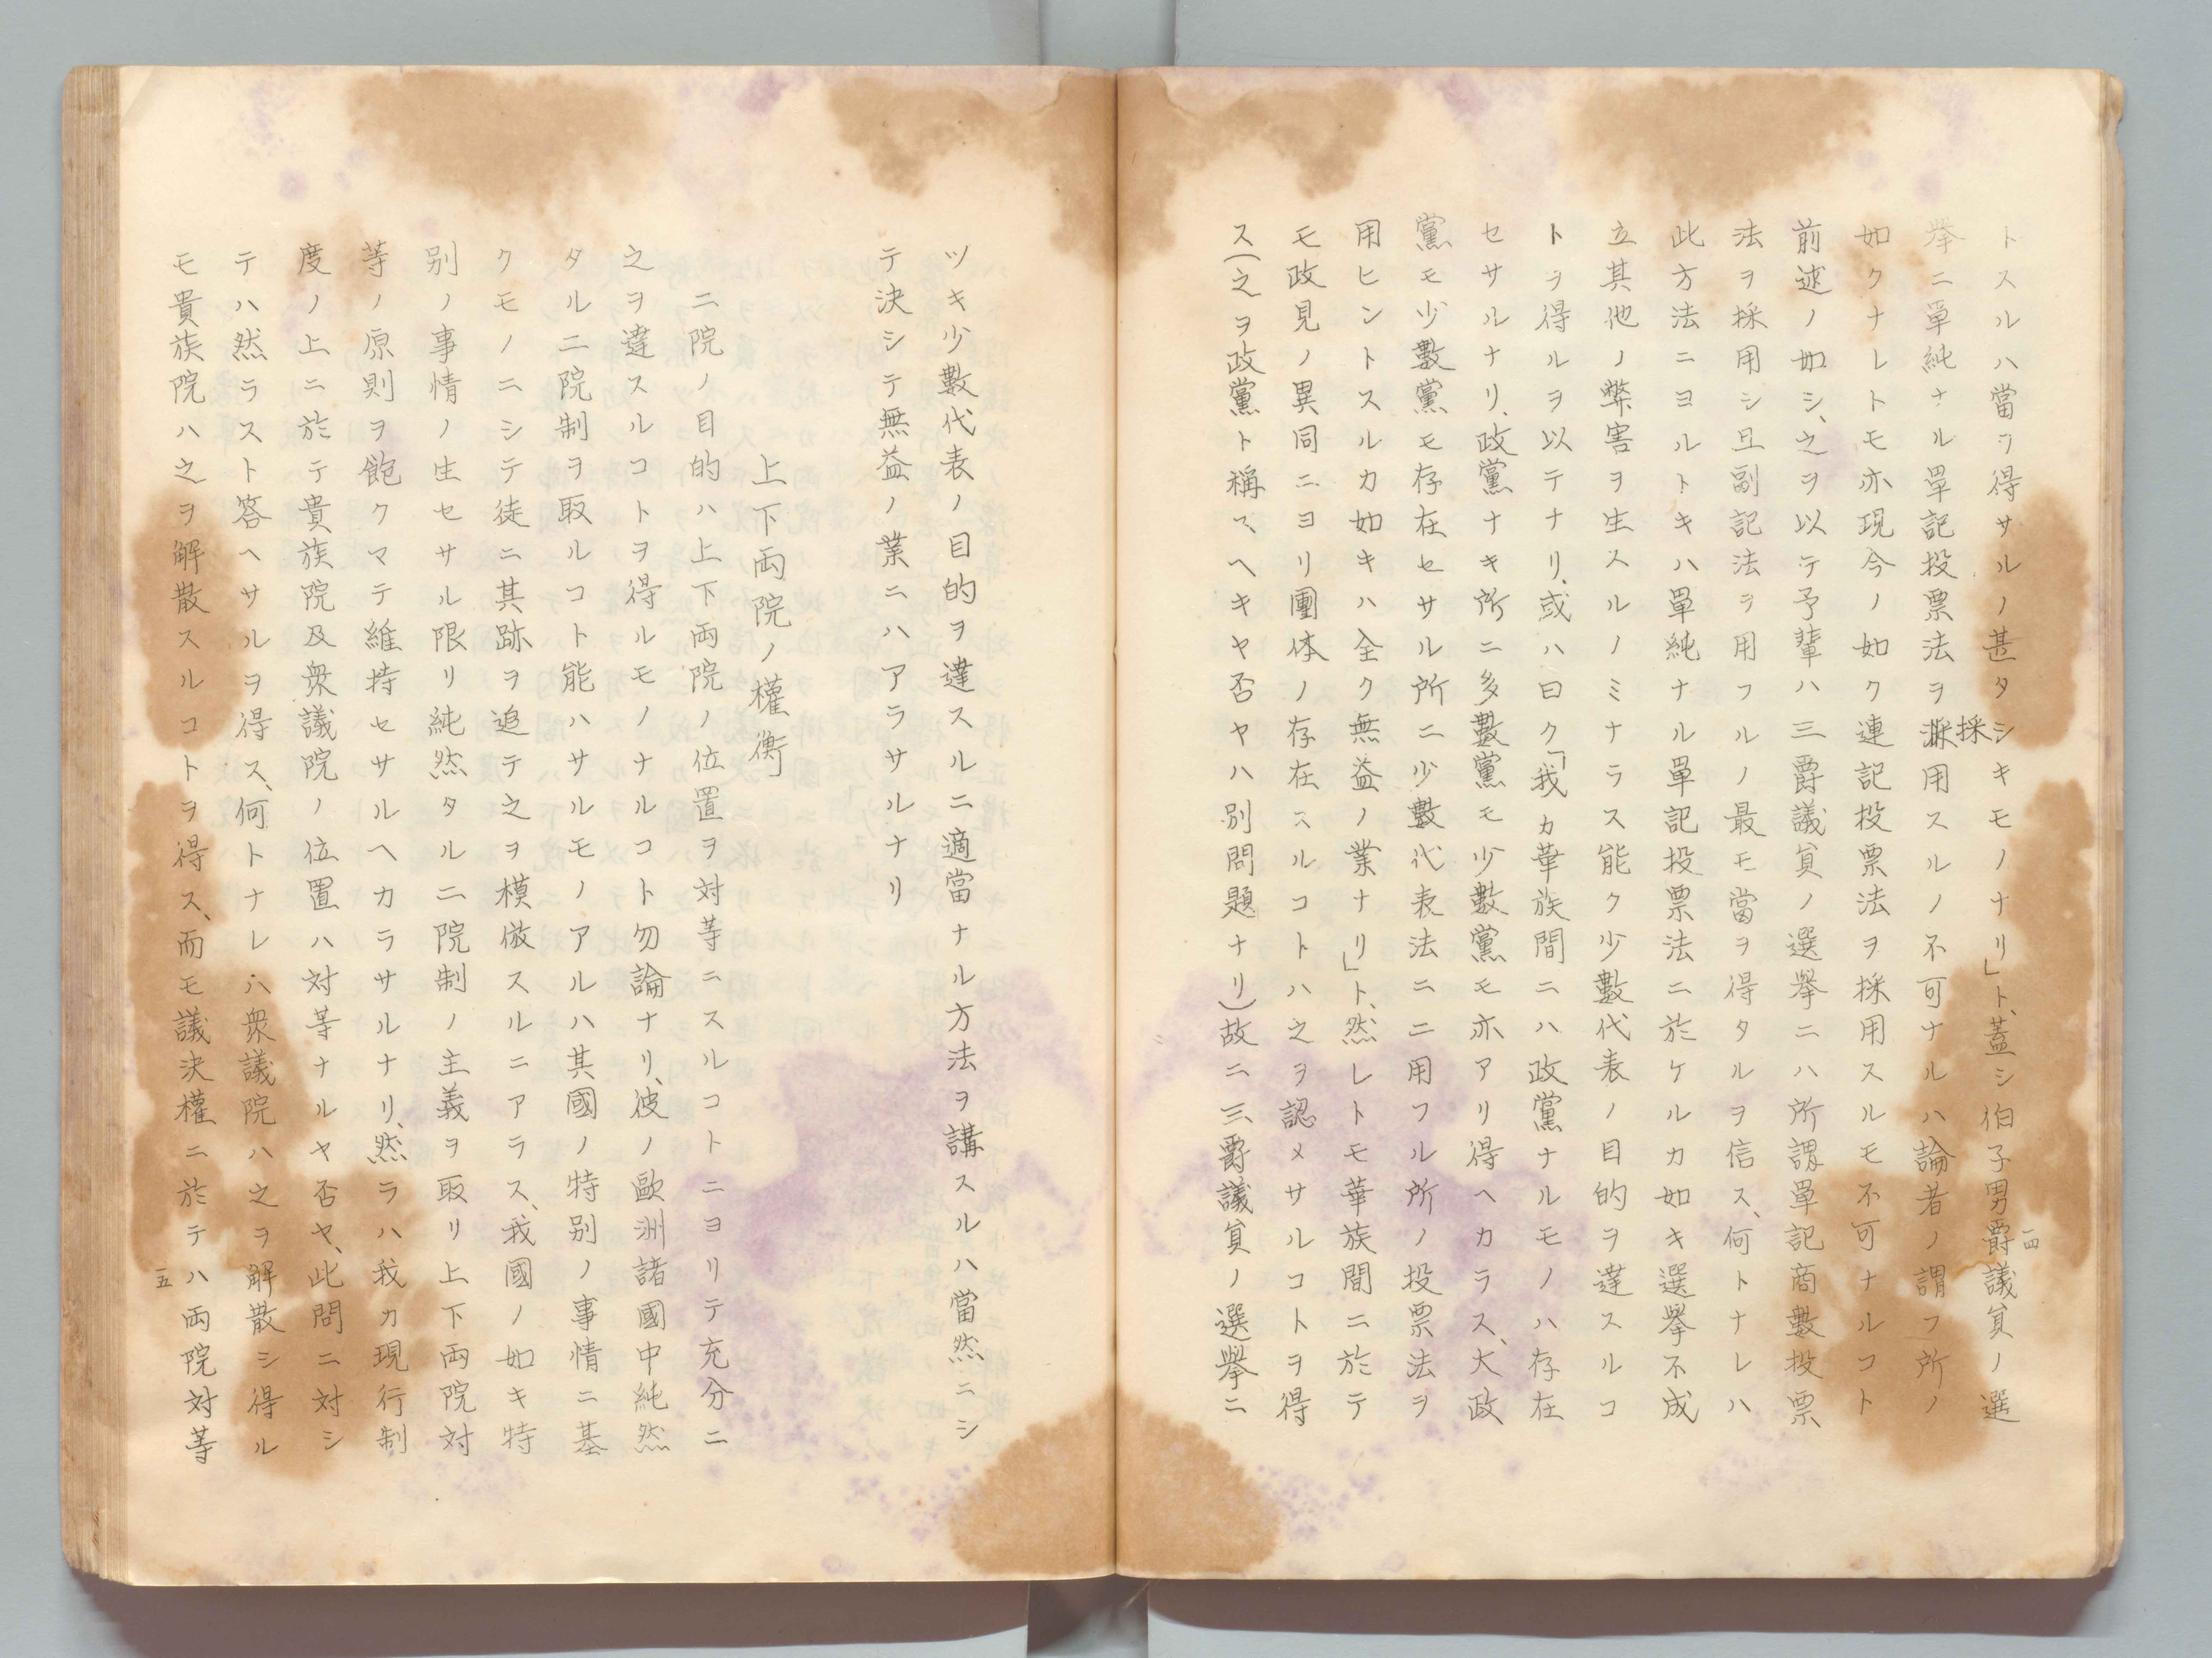 トスルハ當ヲ得サルノ甚タシキモノナリ」ト、蓋シ伯子男爵議員ノ選
擧ニ單純ナル單記投票法ヲ採用スルノ不可ナルハ論者ノ謂フ所ノ
採
如クナレトモ亦現今ノ如ク連記投票法ヲ採用スルモ不可ナルコト
前述ノ如シ、之ヲ以テ予輩ハ三爵議員ノ選擧ニハ所謂單記商數投票
法ヲ採用シ且副記法ヲ用フルノ最モ當ヲ得タルヲ信ス、何トナレハ
此方法ニヨルトキハ單純ナル單記投票法ニ於ケルカ如キ選擧不成
立其他ノ弊害ヲ生スルノミナラス能ク少數代表ノ目的ヲ達スルコ
トヲ得ルヲ以テナリ、或ハ曰ク「我カ華族間ニハ政黨ナルモノハ存在
セサルナリ、政黨ナキ所ニ多數黨モ少數黨モ亦アリ得ヘカラス、大政
黨モ少數黨モ存在セサル所ニ少數代表法ニニ用フル所ノ投票法ヲ
用ヒントスルカ如キハ全ク無益ノ業ナリ」ト、然レトモ華族間ニ於テ
モ政見ノ異同ニヨリ團体ノ存在スルコトハ之ヲ認メサルコトヲ得
ス(之ヲ政黨ト稱スヘキヤ否ヤハ別問題ナリ)故ニ三爵議員ノ選擧ニ
一四
ツキ少數代表ノ目的ヲ達スルニ適當ナル方法ヲ講スルハ當然ニシ
テ決シテ無益ノ業ニハアラサルナリ
上下両院ノ權衡
二院ノ目的ハ上下両院ノ位置ヲ対等ニスルコトニヨリテ充分ニ
之ヲ達スルコトヲ得ルモノナルコト勿論ナリ、彼ノ歐洲諸國中純然
タル二院制ヲ取ルコト能ハサルモノアルハ其國ノ特別ノ事情ニ基
クモノニシテ徒ニ其跡ヲ追テ之ヲ模倣スルニアラス、我國ノ如キ特
別ノ事情ノ生セサル限リ純然タル二院制ノ主義ヲ取リ上下両院対
等ノ原則ヲ飽クマテ維持セサルヘカラサルナリ、然ラハ我カ現行制
度ノ上ニ於テ貴族院及衆議院ノ位置ハ対等ナルヤ否ヤ、此問ニ対シ
テハ然ラスト答ヘサルヲ得ス、何トナレハ衆議院ハ之ヲ解散シ得ル
モ貴族院ハ之ヲ解散スルコトヲ得ス、而モ議決權ニ於テハ両院対等
一五